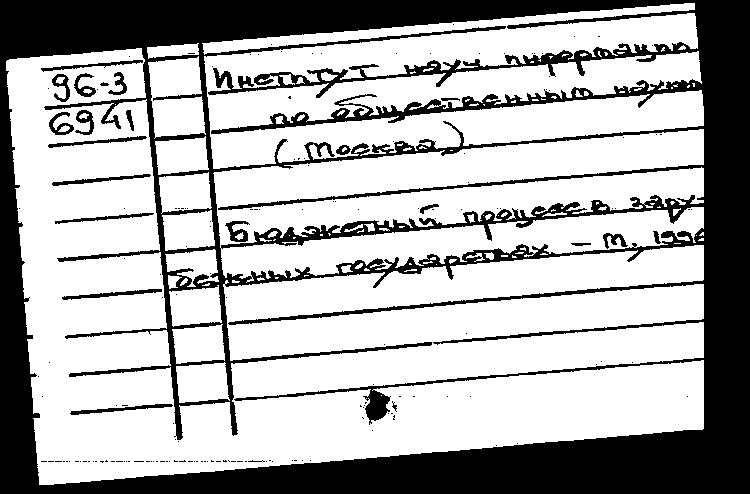 96-3
6941
Институт науч. информации
по общественным наукам
(Москва).
Бюджетный процесс в зару-
бежных государствах. – М., 1996